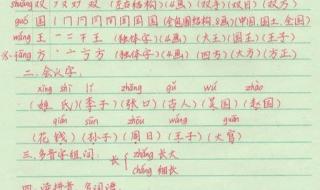 shuāng 双 フ又双 双 (左右结构)(4画)(双手)(双日)(双方)
guó 国 丨冂冂冂国国国国 (全包围结构,8画)(中国,国土,全国)
wáng 王 一二干王 (独体字)(4画)(大王)(国王)(王子)
fāng 方 丶亠方方 (独体字)(4画)(四方)(大方)(方正)
二.会认字.
xìng shì lǐ zhāng gǔ wú zhào
(姓氏)(李子)(张口)(古人)(吴国)(赵国)
qián sūn zhōu wáng guān
(花钱)(孙子)(周日)(王子)(大官)
三.多音字组词.
长{zhǎng 长大
cháng 细长